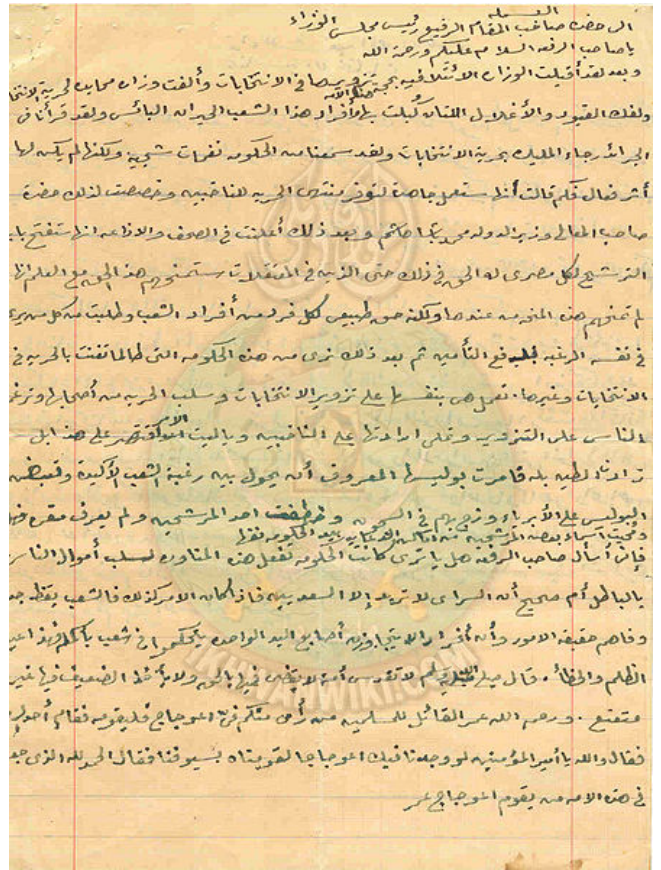 الى حضرة صاحب المقام الرفيع رئيس مجلس الوزراء
يا صاحب الرفعة السلام عليكم ورحمة الله
وبعد لقد أقيلت الوزاره الائتلافيه بحجة تزويرها في الانتخابات وألفت وزاره محايده لحرية
ولفك القيود والأغلال اللتان كُبلت بها أفراد هذا الشعب الحيران البائس ولقد قرأنا في
الجرائد رجاء المليك بحرية الانتخابات ولقد سمعنا من الحكومه نغمات شجية ولكنها لم يكن لها
أثر فعال فكم قالت أنها ستعمل جاهدة لتوفر منتهى الحريه للناخبين وخصصت لذلك حضرة
صاحب المعالي وزير الدوله محمد باشا هاشم وبعد ذلك أعلنت في الصحف والاذاعه انها ستفتح باب
الترشيح لكل مصرى له الحق في ذلك حتى الذين في المعتقلات ستمنحهم هذا الحق مع العلم انها
لم تمنحهم هذه المنح من عندها ولكنه حق طبيعى لكل فرد من أفراد الشعب وطلبت من كل من يرى
في نفسه الرغبه بدفع التأمين ثم بعد ذلك نرى من هذه الحكومه التى طالما تغنت بالحريه في
الانتخابات وغيرها. تعمل هى بنفسها على تزوير الانتخابات وسلب الحريه من أصحابها وترغم
الناس على التزوير وتملى ارادتها على الناخبين وياليت الامر اقتصر على هذا بل
زادت الطين بله فأمرت بوليسها المعروف أن يحول بين رغبة الشعب الأكيدة وقبض
البوليس على الأبرياء وزج بهم في السجون وخطفت احد المرشحين ولم يعرف مقره
ومحيت أسماء بعض المرشحين من بيد الحكومه فقط
فإنى أسأل صاحب الرفعه هل يا ترى كانت الحكومه تفعل هذه المناوره لسلب أموال الناس
بالباطل أم صحيح أن السراى لا تريد إلا السعديين فاذا كان الامر كذلك فالشعب يقظ جدا
وفاهم حقيقة الامور وأن أفراد لا يتجاوزن أصابع اليد الواحده يتحكموا في شعب بأكمله فهذا عين
الظلم والخطأ. قال صلى الله عليه وسلم لا تقدس أمة لا يقضى فيها بالحق ولا يأخذ الضعيف فيها غير
متعتع. ورحم الله عمر القائل للمسلمين من رأى منكم فيّ اعوجاج فليقومه فقام
فقال والله يا أمير المؤمنين لو وجدنا فيك اعوجاجا لقومناه بسيوفنا فقال الحمد لله الذى جعل
في هذه الامه من يقوم اعوجاج عمر
IKHWANWIKI.COM